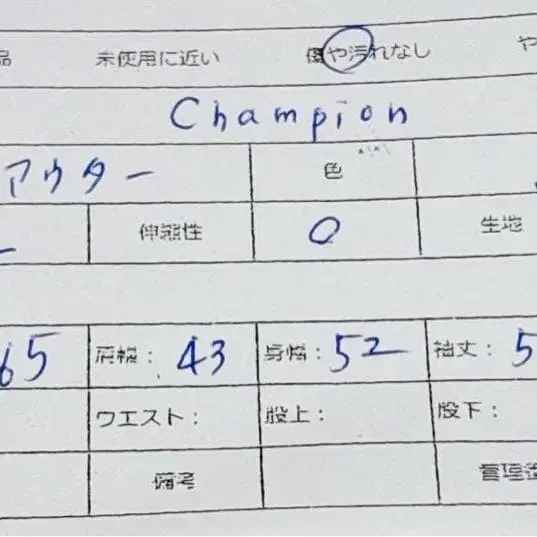 品 未使用に近い 傷や汚れなし や
Champion
アウター 色
伸縮性 O 生地
65 肩幅: 43 身幅: 52 袖丈: 5
ウエスト: 股上: 股下:
備考 管理番